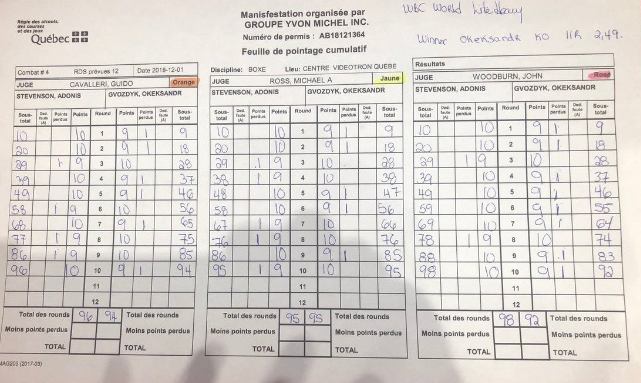 Régie des alcools,
des courses
et des jeux
Québec
Manisfestation organisée par
GROUPE YVON MICHEL INC.
Numéro de permis : AB18121364
Feuille de pointage cumulatif
WBC World
Winner Oleksandr KO 11R 2,49.
Combat # 4 RDS prévues 12 Date 2018-12-01
JUGE CAVALLERI, GUIDO Orange
STEVENSON, ADONIS GVOZDYK, OKEKSANDR
Sous-total Déd. faute (A) Points perdus Points Round Points Points perdus Déd. faute (A) Sous-total
10 10 1 9 1 9
20 10 2 9 1 18
29 1 9 3 10 28
39 10 4 9 1 37
49 10 5 9 1 46
58 1 9 6 10 56
68 10 7 9 1 65
77 1 9 8 10 75
86 1 9 9 10 85
96 10 10 9 1 94
11
12
Total des rounds 96 94
Moins points perdus
TOTAL
Discipline: BOXE Lieu: CENTRE VIDEOTRON QUEBE
JUGE ROSS, MICHAEL A Jaune
STEVENSON, ADONIS GVOZDYK, OKEKSANDR
Sous-total Déd. faute (A) Points perdus Points Round Points Points perdus Déd. faute (A) Sous-total
10 10 1 9 1 9
20 10 2 9 1 18
29 1 9 3 10 28
38 1 9 4 10 38
48 10 5 9 1 47
58 10 6 9 1 56
67 1 9 7 10 66
76 1 9 8 10 76
86 10 9 9 1 85
95 1 9 10 10 95
11
12
Total des rounds 95 95
Moins points perdus
TOTAL
Résultats
JUGE WOODBURN, JOHN Rosé
STEVENSON, ADONIS GVOZDYK, OKEKSANDR
Sous-total Déd. faute (A) Points perdus Points Round Points Points perdus Déd. faute (A) Sous-total
10 10 1 9 1 9
20 10 2 9 1 18
29 1 9 3 10 28
39 10 4 9 1 37
49 10 5 9 1 46
59 10 6 9 1 55
69 10 7 9 1 64
78 1 9 8 10 74
88 10 9 9 1 83
98 10 10 9 1 92
11
12
Total des rounds 98 92
Moins points perdus
TOTAL